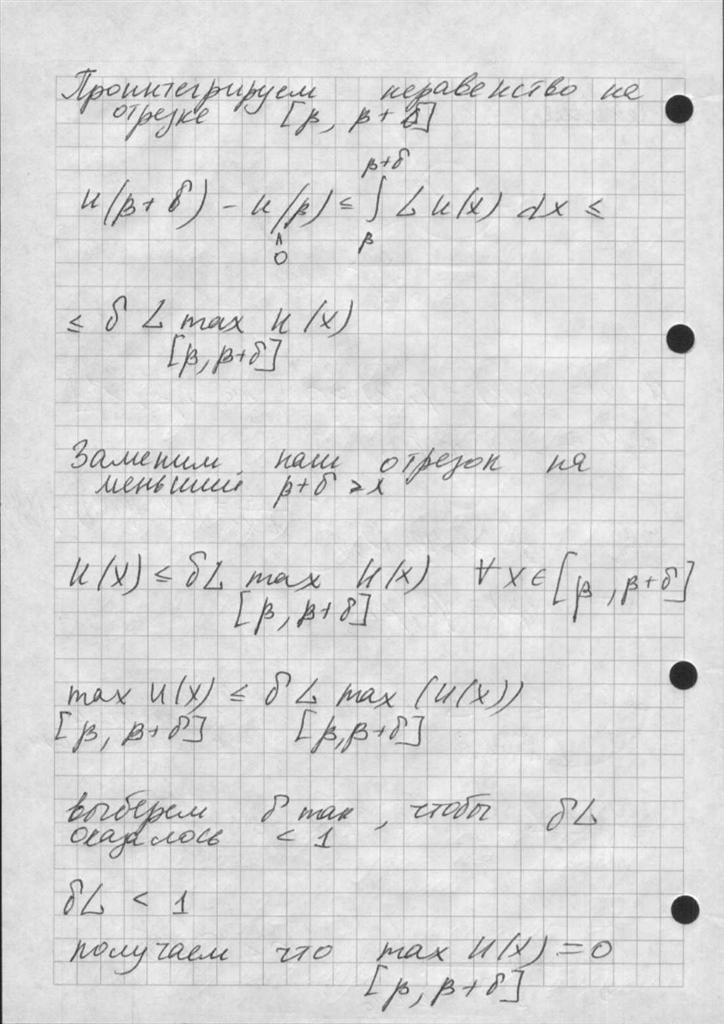 Проинтегрируем неравенство на
отрезке [β, β + δ]
β+δ
u(β+δ) - u(β) ≤ ∫ L u(x) dx ≤
∧ β
0
≤ δ L max u(x)
[β, β+δ]
Заменим наш отрезок на
меньший β+δ > x
u(x) ≤ δL max u(x) ∀ x ∈ [β, β+δ]
[β, β+δ]
max u(x) ≤ δ L max (u(x))
[β, β+δ] [β,β+δ]
выберем δ так, чтобы δL
оказалось < 1
δL < 1
получаем что max u(x) = 0
[β, β+δ]